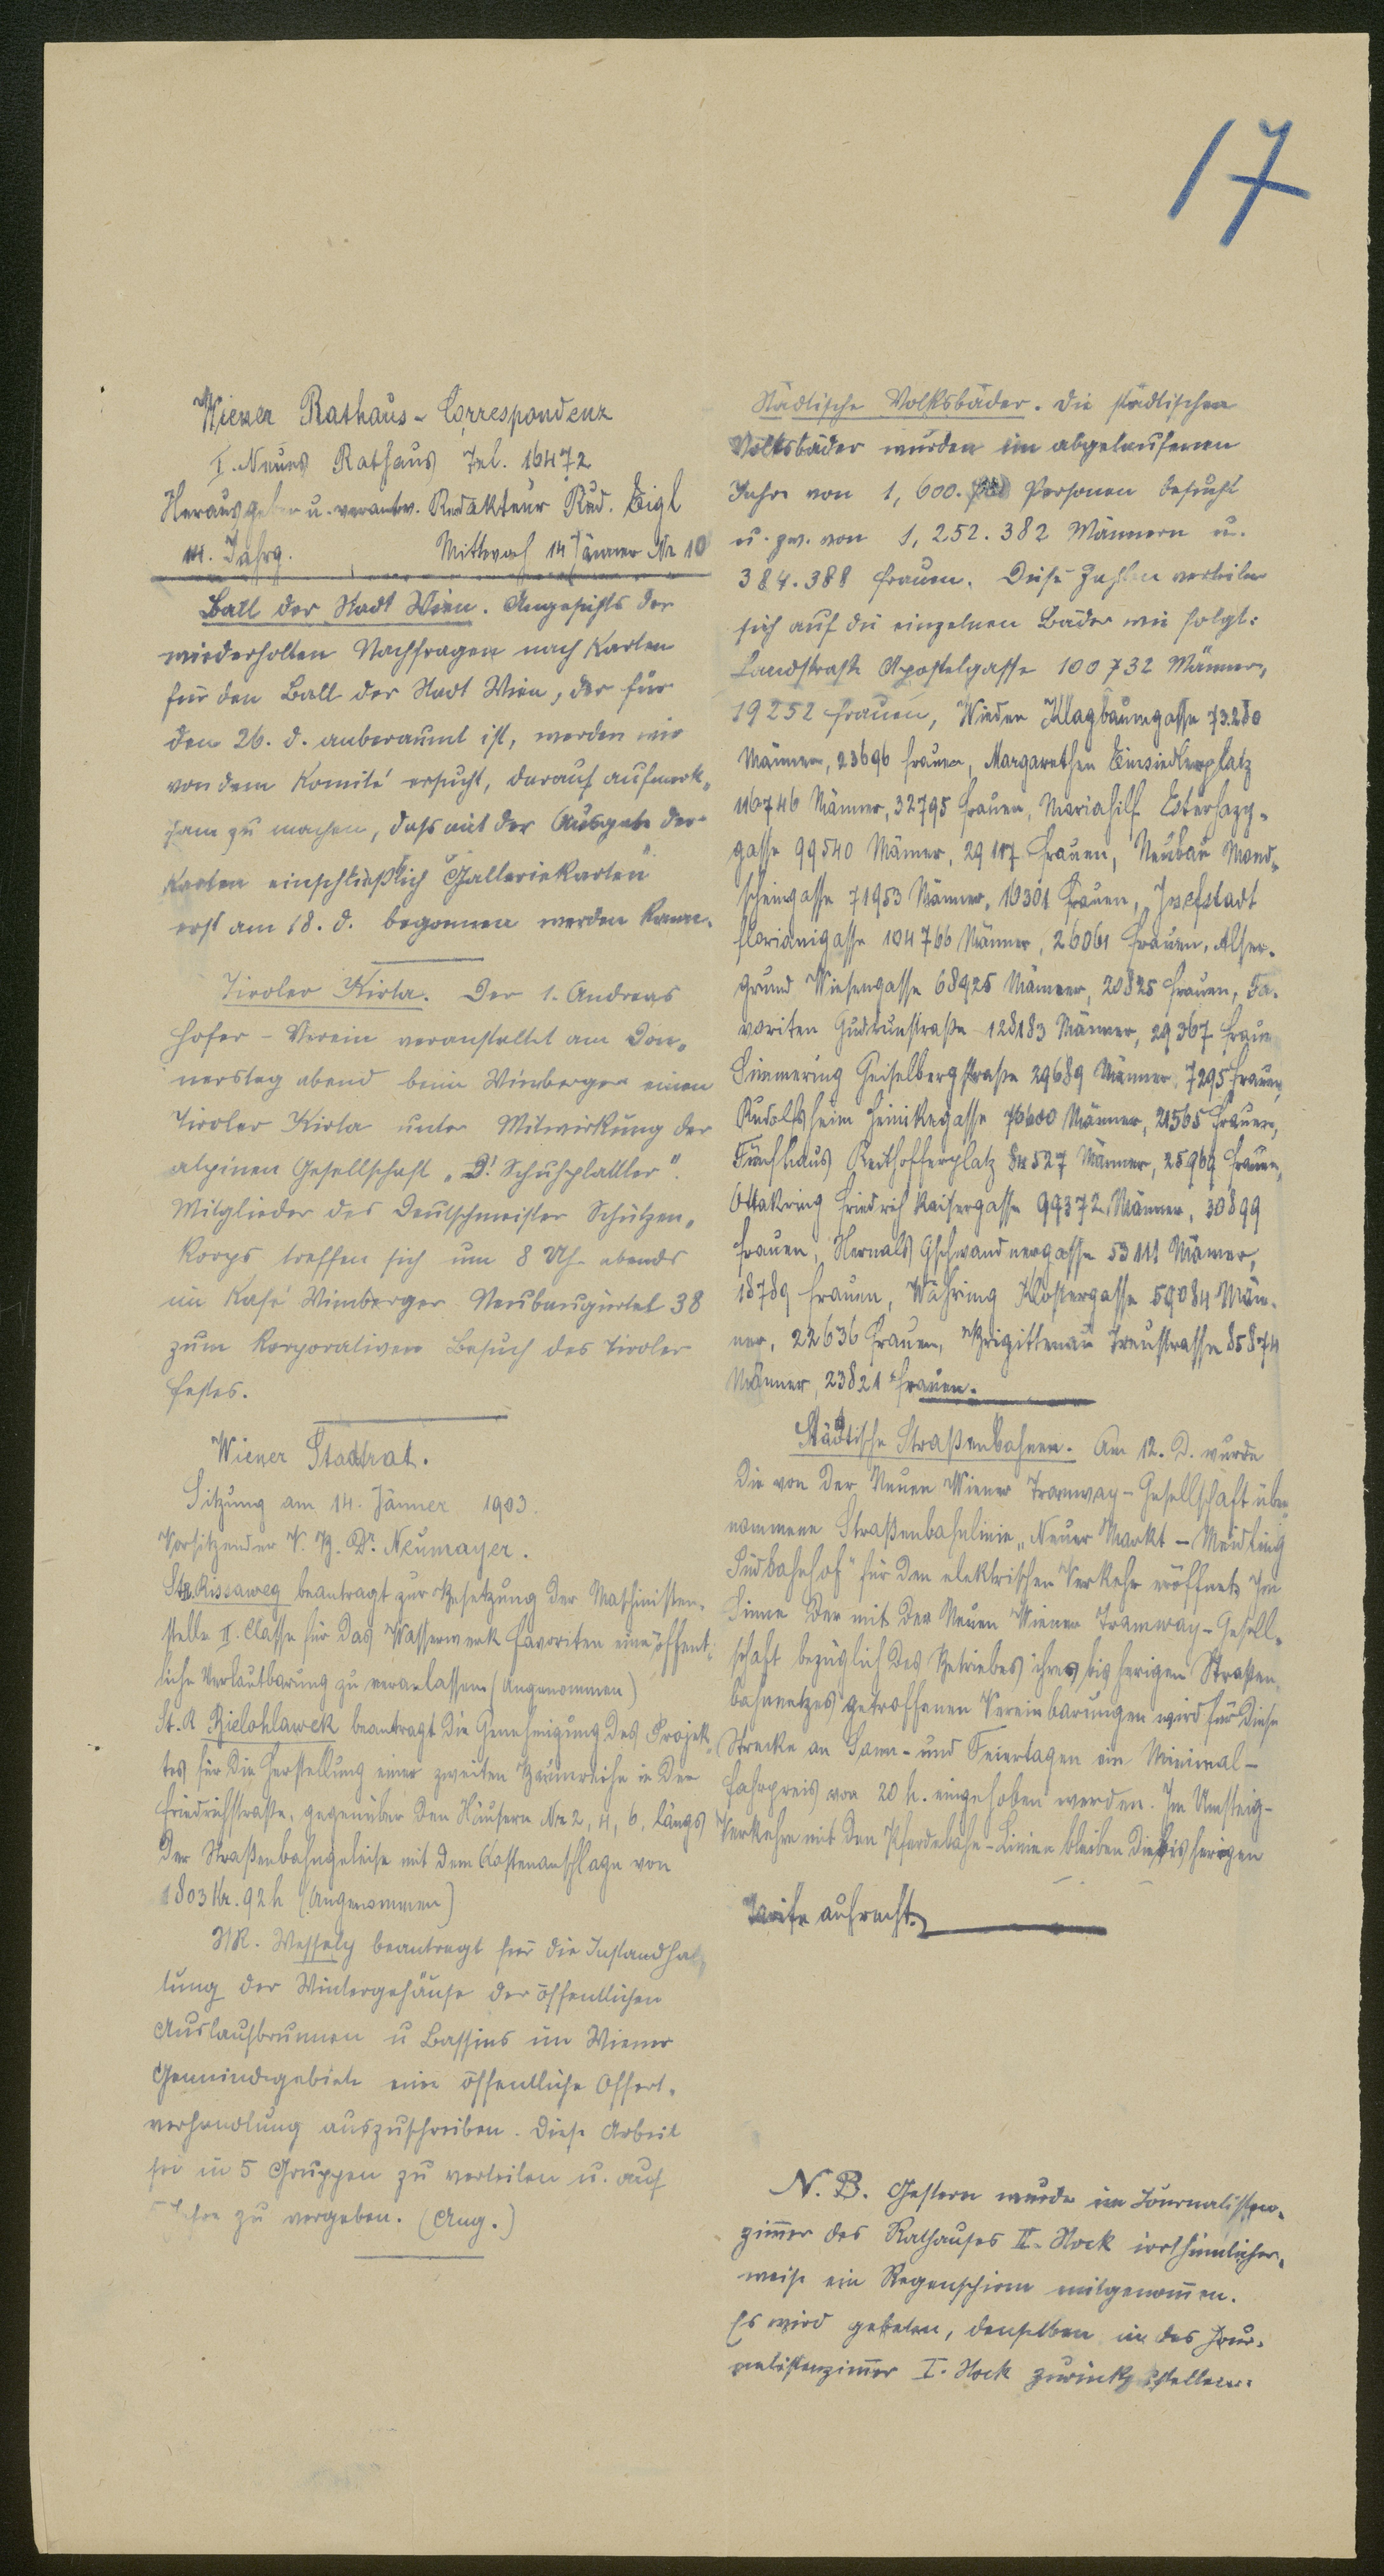 17
Wiener Rathaus-Correspondenz
I. Neues Rathaus Tel. 16472
Herausgeber u. verantw. Redakteur Rud. Eigl
III. Jahrg. Mittwoch 14 Jänner Nr 10
Ball der Stadt Wien. Angesichts der
wiederholten Nachfragen nach Karten
für den Ball der Stadt Wien, der für
den 26. d. anberaumt ist, werden wir
von dem Komité ersucht, darauf aufmerk„
sam zu machen, daß mit der Ausgabe der
Karten einschließlich „Galleriekarten“
erst am 18. d. begonnen werden kann.
Tiroler Kirta. Der 1. Andreas
Hofer-Verein veranstaltet am Don„
nerstag abend beim Wimberger einen
Tiroler Kirta unter Mitwirkung der
alpinen Gesellschaft „D' Schuhplattler“.
Mitglieder des Deutschmeister Schützen„
korps treffen sich um 8 Uhr abends
im Kafé Wimberger Neubaugürtel 38
zum korporativen Besuch des Tiroler
Festes.
Wiener Stadtrat.
Sitzung am 14. Jänner 1903.
Vorsitzender V. B. Dr. Neumayer.
StR. Rissaweg beantragt zur Besetzung der Maschinisten„
stelle II. Classe für das Wasserwerk Favoriten eine öffent„
liche Verlautbarung zu veranlassen (Angenommen)
St. R Bielohlawek beantragt die Genehmigung des Projek„
tes für die Herstellung einer zweiten Baumreihe in der
Friedrichstraße, gegenüber den Häusern Nr 2, 4, 6, längs
der Straßenbahngeleise mit dem Kostenanschlage von
1803 Kr. 92 h (Angenommen)
StR. Wessely beantragt für die Instandhal„
tung der Wintergehäuse der öffentlichen
Auslaufbrunnen u Bassins im Wiener
Gemeindegebiete eine öffentliche Offert„
verhandlung auszuschreiben. Diese Arbeit
sei in 5 Gruppen zu verteilen u. auf
5 Jahre zu vergeben. (Ang.)
Städtische Volksbäder. Die städtischen
Volksbäder wurden im abgelaufenen
Jahre von 1,600. Personen besucht
u. zw. von 1,252.382 Männern u.
384.388 Frauen. Diese Zahlen verteilen
sich auf die einzelnen Bäder wie folgt:
Landstraße Apostelgasse 100732 Männer,
19252 Frauen, Wieden Klagbaumgasse 73.280
Männer, 23696 Frauen, Margarethen Einsiedlerplatz
116746 Männer, 32795 Frauen, Mariahilf Esterhazy„
gasse 99540 Männer, 29117 Frauen, Neubau Mond„
scheingasse 71953 Männer, 10301 Frauen, Josefstadt
Florianigasse 104766 Männer, 26061 Frauen, Alser„
grund Wiesengasse 68925 Männer, 20825 Frauen, Fa„
voriten Gudrunstraße 128183 Männer, 29367 Frauen
Simmering Geiselbergstraße 29689 Männer, 7295 Frauen,
Rudolfsheim Heinikegasse 76600 Männer, 21565 Frauen,
Fünfhaus Reithofferplatz 84527 Männer, 25969 Frauen,
Ottakring Friedrich Kaisergasse 99372 Männer, 30899
Frauen, Hernals Gschwandnergasse 53111 Männer,
18789 Frauen, Währing Klostergasse 59084 Män„
ner, 22636 Frauen, Brigittenau Treustrasse 85874
Männer, 23821 Frauen.
Städtische Straßenbahnen. Am 12. d. wurde
die von der Neuen Wiener Tramway-Gesellschaft über„
nommene Straßenbahnlinie „Neuer Markt - Meidling
Südbahnhof“ für den elektrischen Verkehr eröffnet. Im
Sinne der mit der Neuen Wiener Tramway-Gesell„
schaft bezüglich des Betriebes ihres bisherigen Straßen„
bahnnetzes getroffenen Vereinbarungen wird für diese
Strecke an Sonn- und Feiertagen ein Minimal-
fahrpreis von 20 h. eingehoben werden. Im Umsteig-
Verkehre mit den Pferdebahn-Linien bleiben die bisherigen
Tarife aufrecht.
N. B. Gestern wurde im Journalisten„
zimmer des Rathauses II. Stock irrthümlicher„
weise ein Regenschirm mitgenommen.
Es wird gebeten, denselben in das Jour„
nalistenzimmer I. Stock zurückzustellen.